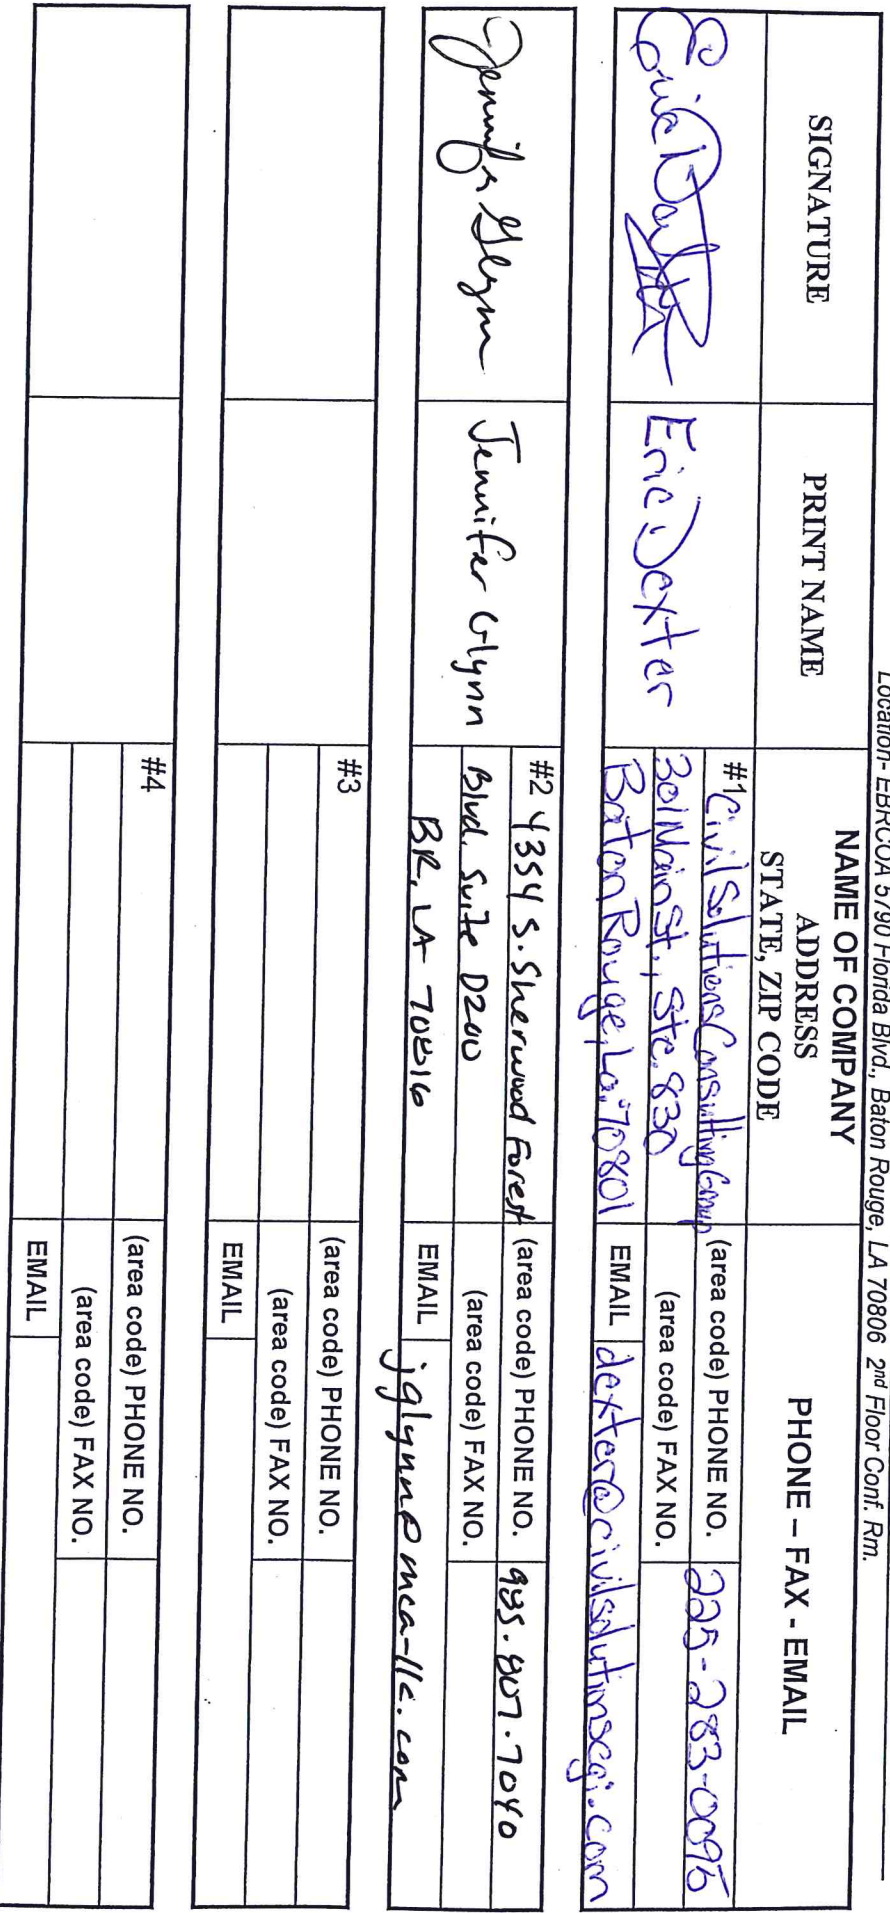 Location- EBRCOA 5790 Florida Blvd., Baton Rouge, LA 70806 2nd Floor Conf. Rm.
SIGNATURE
PRINT NAME
NAME OF COMPANY
ADDRESS
STATE, ZIP CODE
PHONE – FAX - EMAIL
Eric Dexter
#1 Civil Solutions Consulting Group
301 Main St., Ste. 830
Baton Rouge, La. 70801
(area code) PHONE NO. 225-283-0095
(area code) FAX NO.
EMAIL dexter@civilsolutionscgi.com
Jennifer Glynn
Jennifer Glynn
#2 4354 S. Sherwood Forest
Blvd. Suite D200
BR, LA 70816
(area code) PHONE NO. 985.807.7040
(area code) FAX NO.
EMAIL jglynn@mca-llc.com
#3
(area code) PHONE NO.
(area code) FAX NO.
EMAIL
#4
(area code) PHONE NO.
(area code) FAX NO.
EMAIL